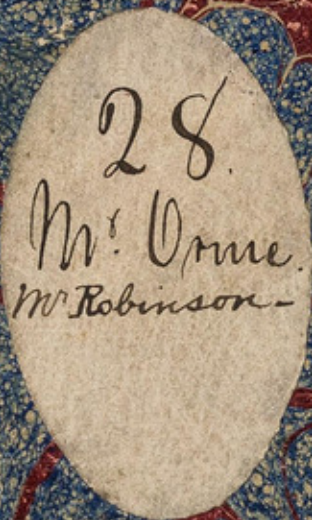 28.
Mr. Orme.
Mr Robinson -